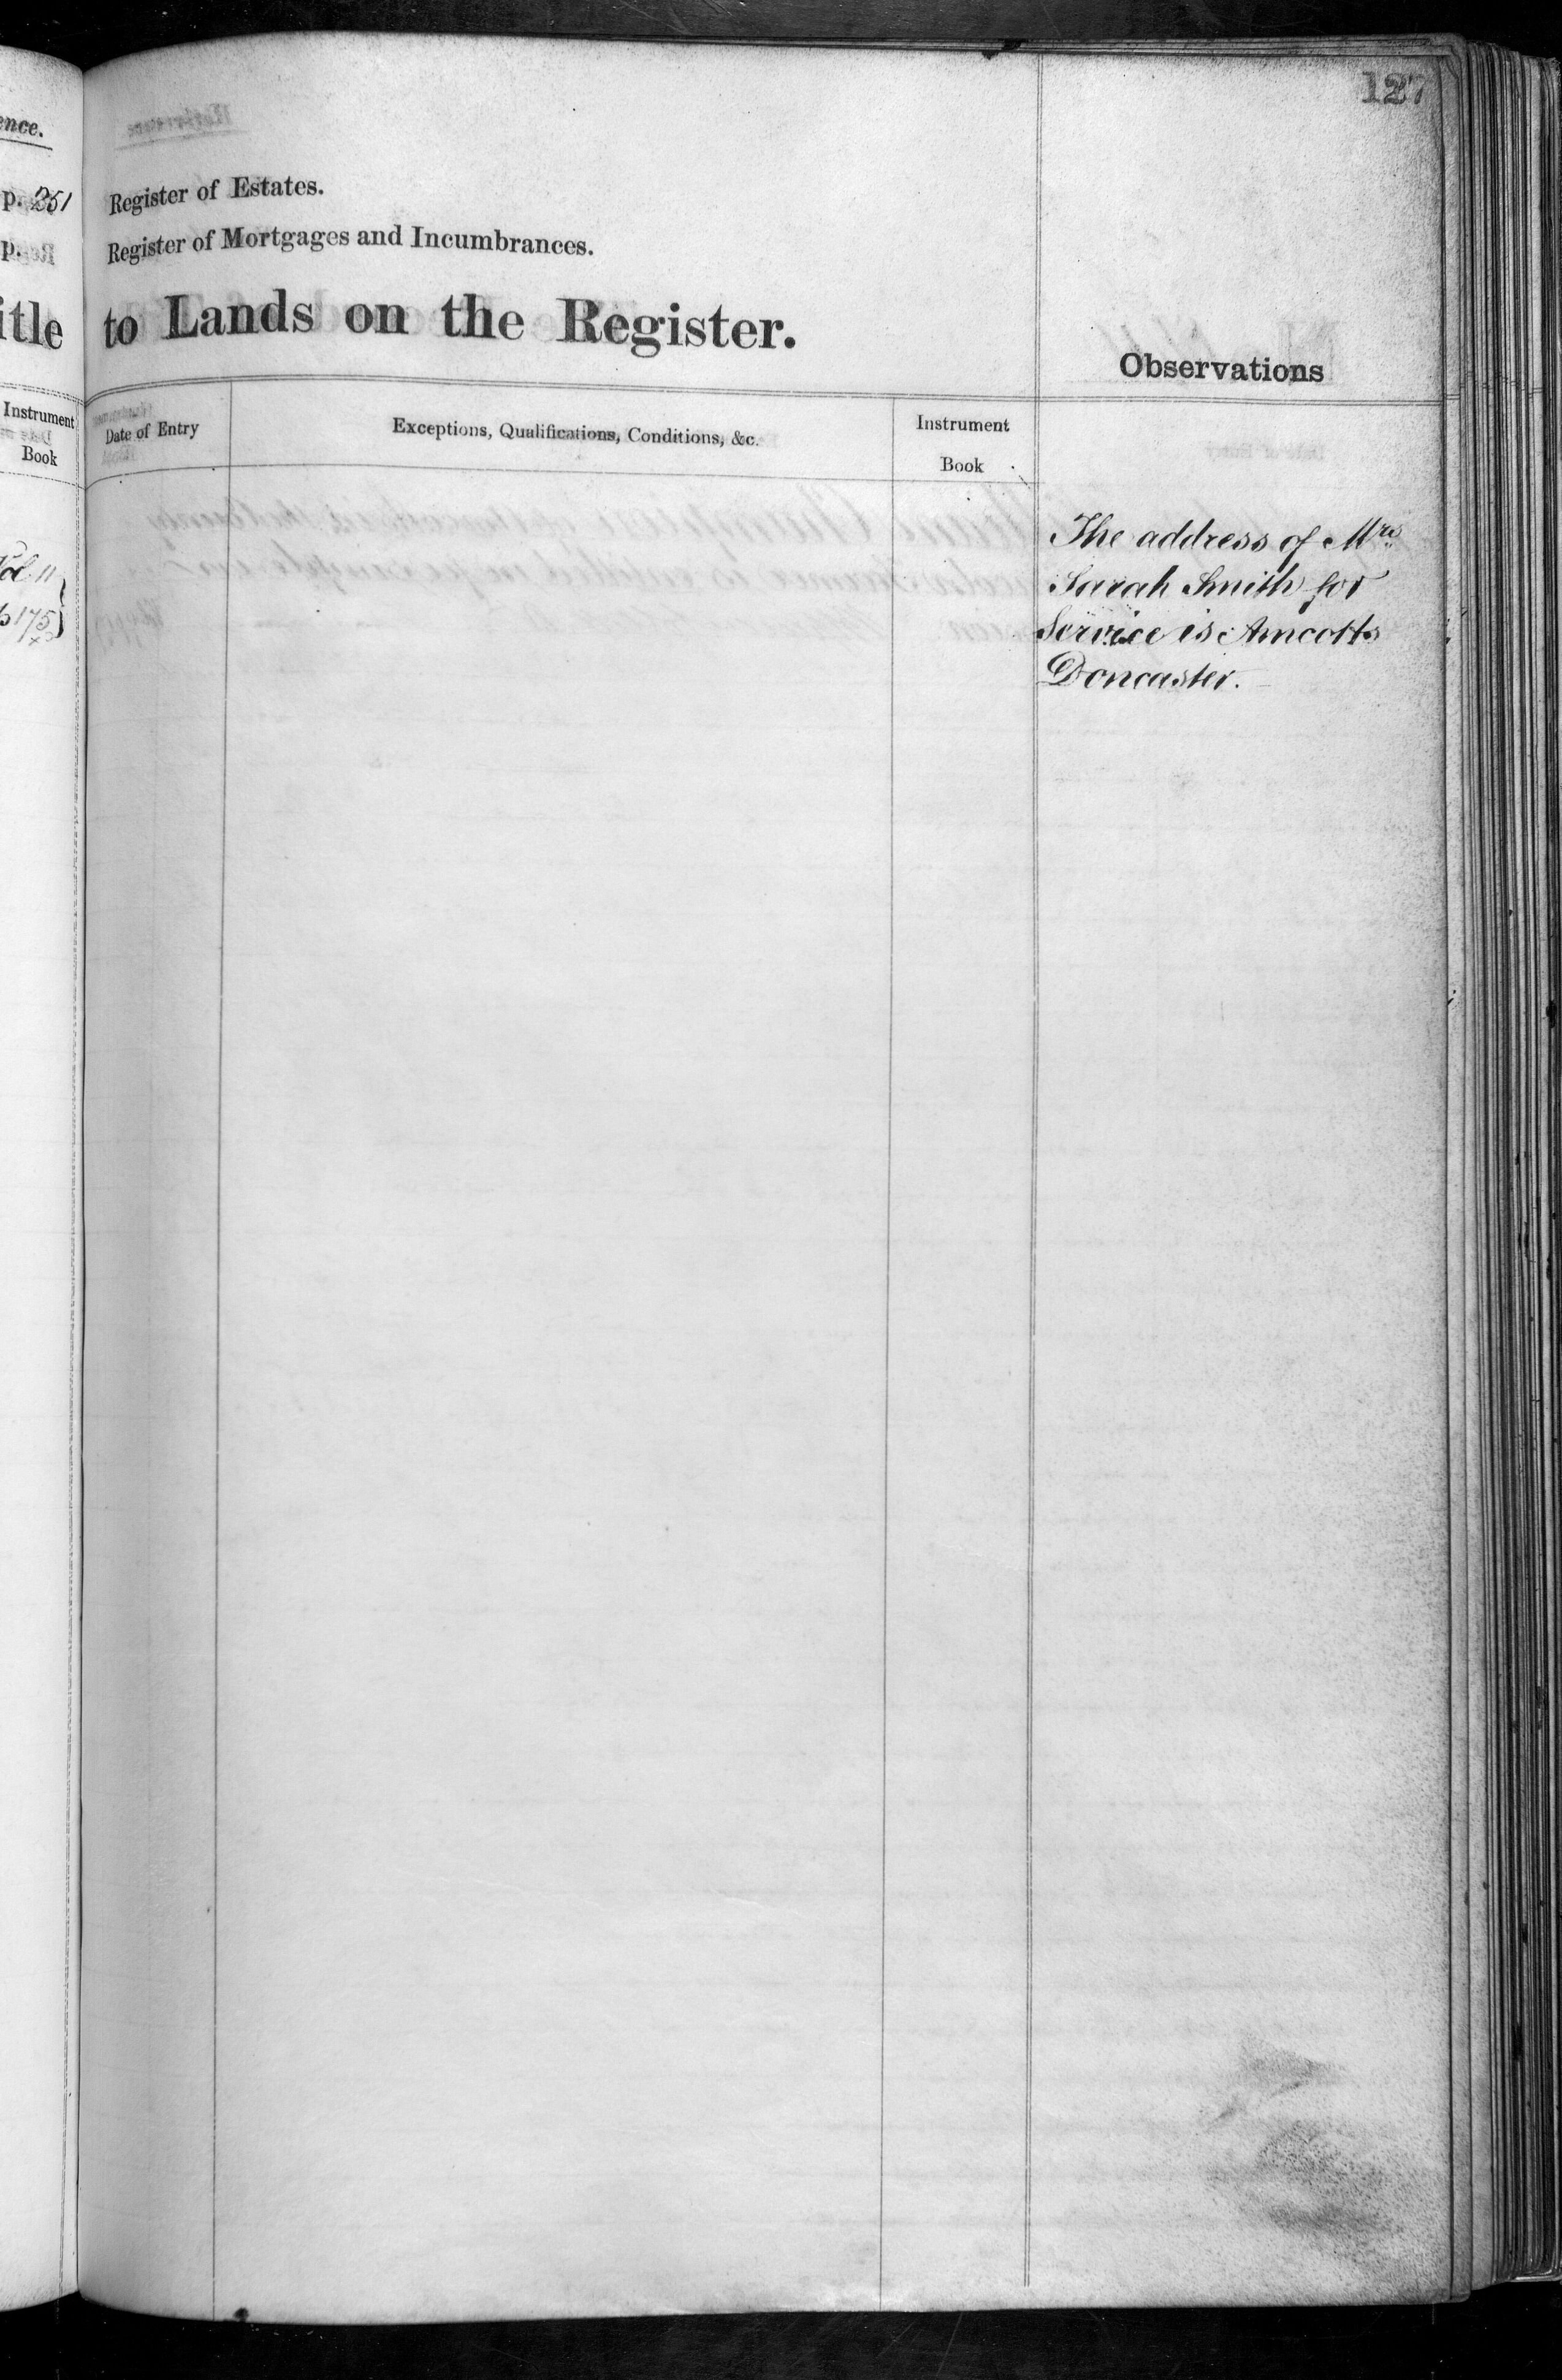 127
ence.
p. 251
p.
itle
Instrument
Book
Vol. 11
p 175
Register of Estates.
Register of Mortgages and Incumbrances.
to Lands on the Register.
Observations
Date of Entry
Exceptions, Qualifications, Conditions, &c.
Instrument
Book
The address of Mrs
Sarah Smith for
Service is Amcotts
Doncaster.